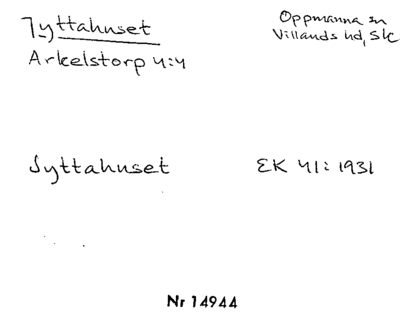 Jyttahuset
Oppmanna sn
Villands hd, Sk
Arkelstorp 4:4
Syttahuset
EK 41:1931
Nr 14944